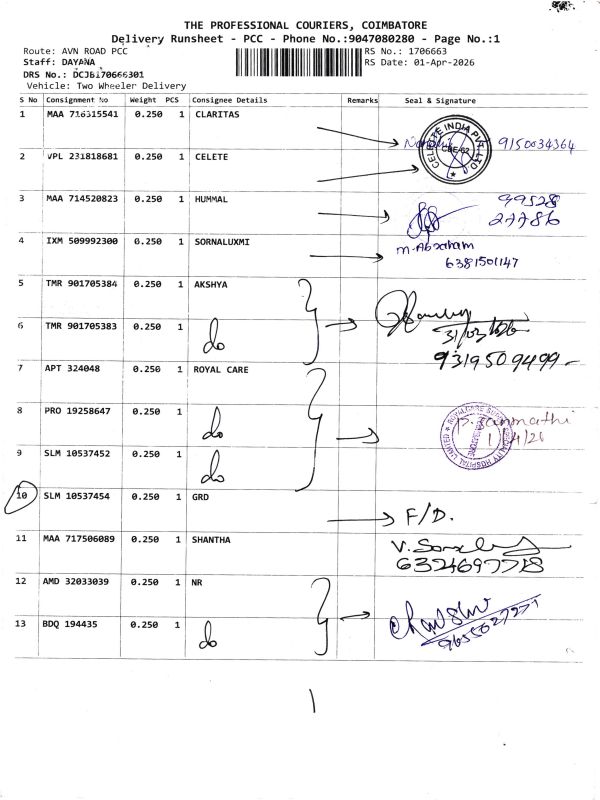 THE PROFESSIONAL COURIERS, COIMBATORE
Delivery Runsheet - PCC - Phone No.:9047080280 - Page No.:1
Route: AVN ROAD PCC RS No.: 1706663
Staff: DAYANA RS Date: 01-Apr-2026
DRS No.: DCJB170666301
Vehicle: Two Wheeler Delivery
S No Consignment No Weight PCS Consignee Details Remarks Seal & Signature
1 MAA 716315541 0.250 1 CLARITAS 9150034364
CELETE INDIA PVT LTD
CBE-62
2 VPL 231818681 0.250 1 CELETE
3 MAA 714520823 0.250 1 HUMMAL 99528
27786
4 IXM 509992300 0.250 1 SORNALUXMI M. Abraham
6381501147
5 TMR 901705384 0.250 1 AKSHYA
6 TMR 901705383 0.250 1 do
9319509499
7 APT 324048 0.250 1 ROYAL CARE
8 PRO 19258647 0.250 1 do
1/4/26
9 SLM 10537452 0.250 1 do
10 SLM 10537454 0.250 1 GRD F/D.
11 MAA 717506089 0.250 1 SHANTHA
12 AMD 32033039 0.250 1 NR
13 BDQ 194435 0.250 1 do